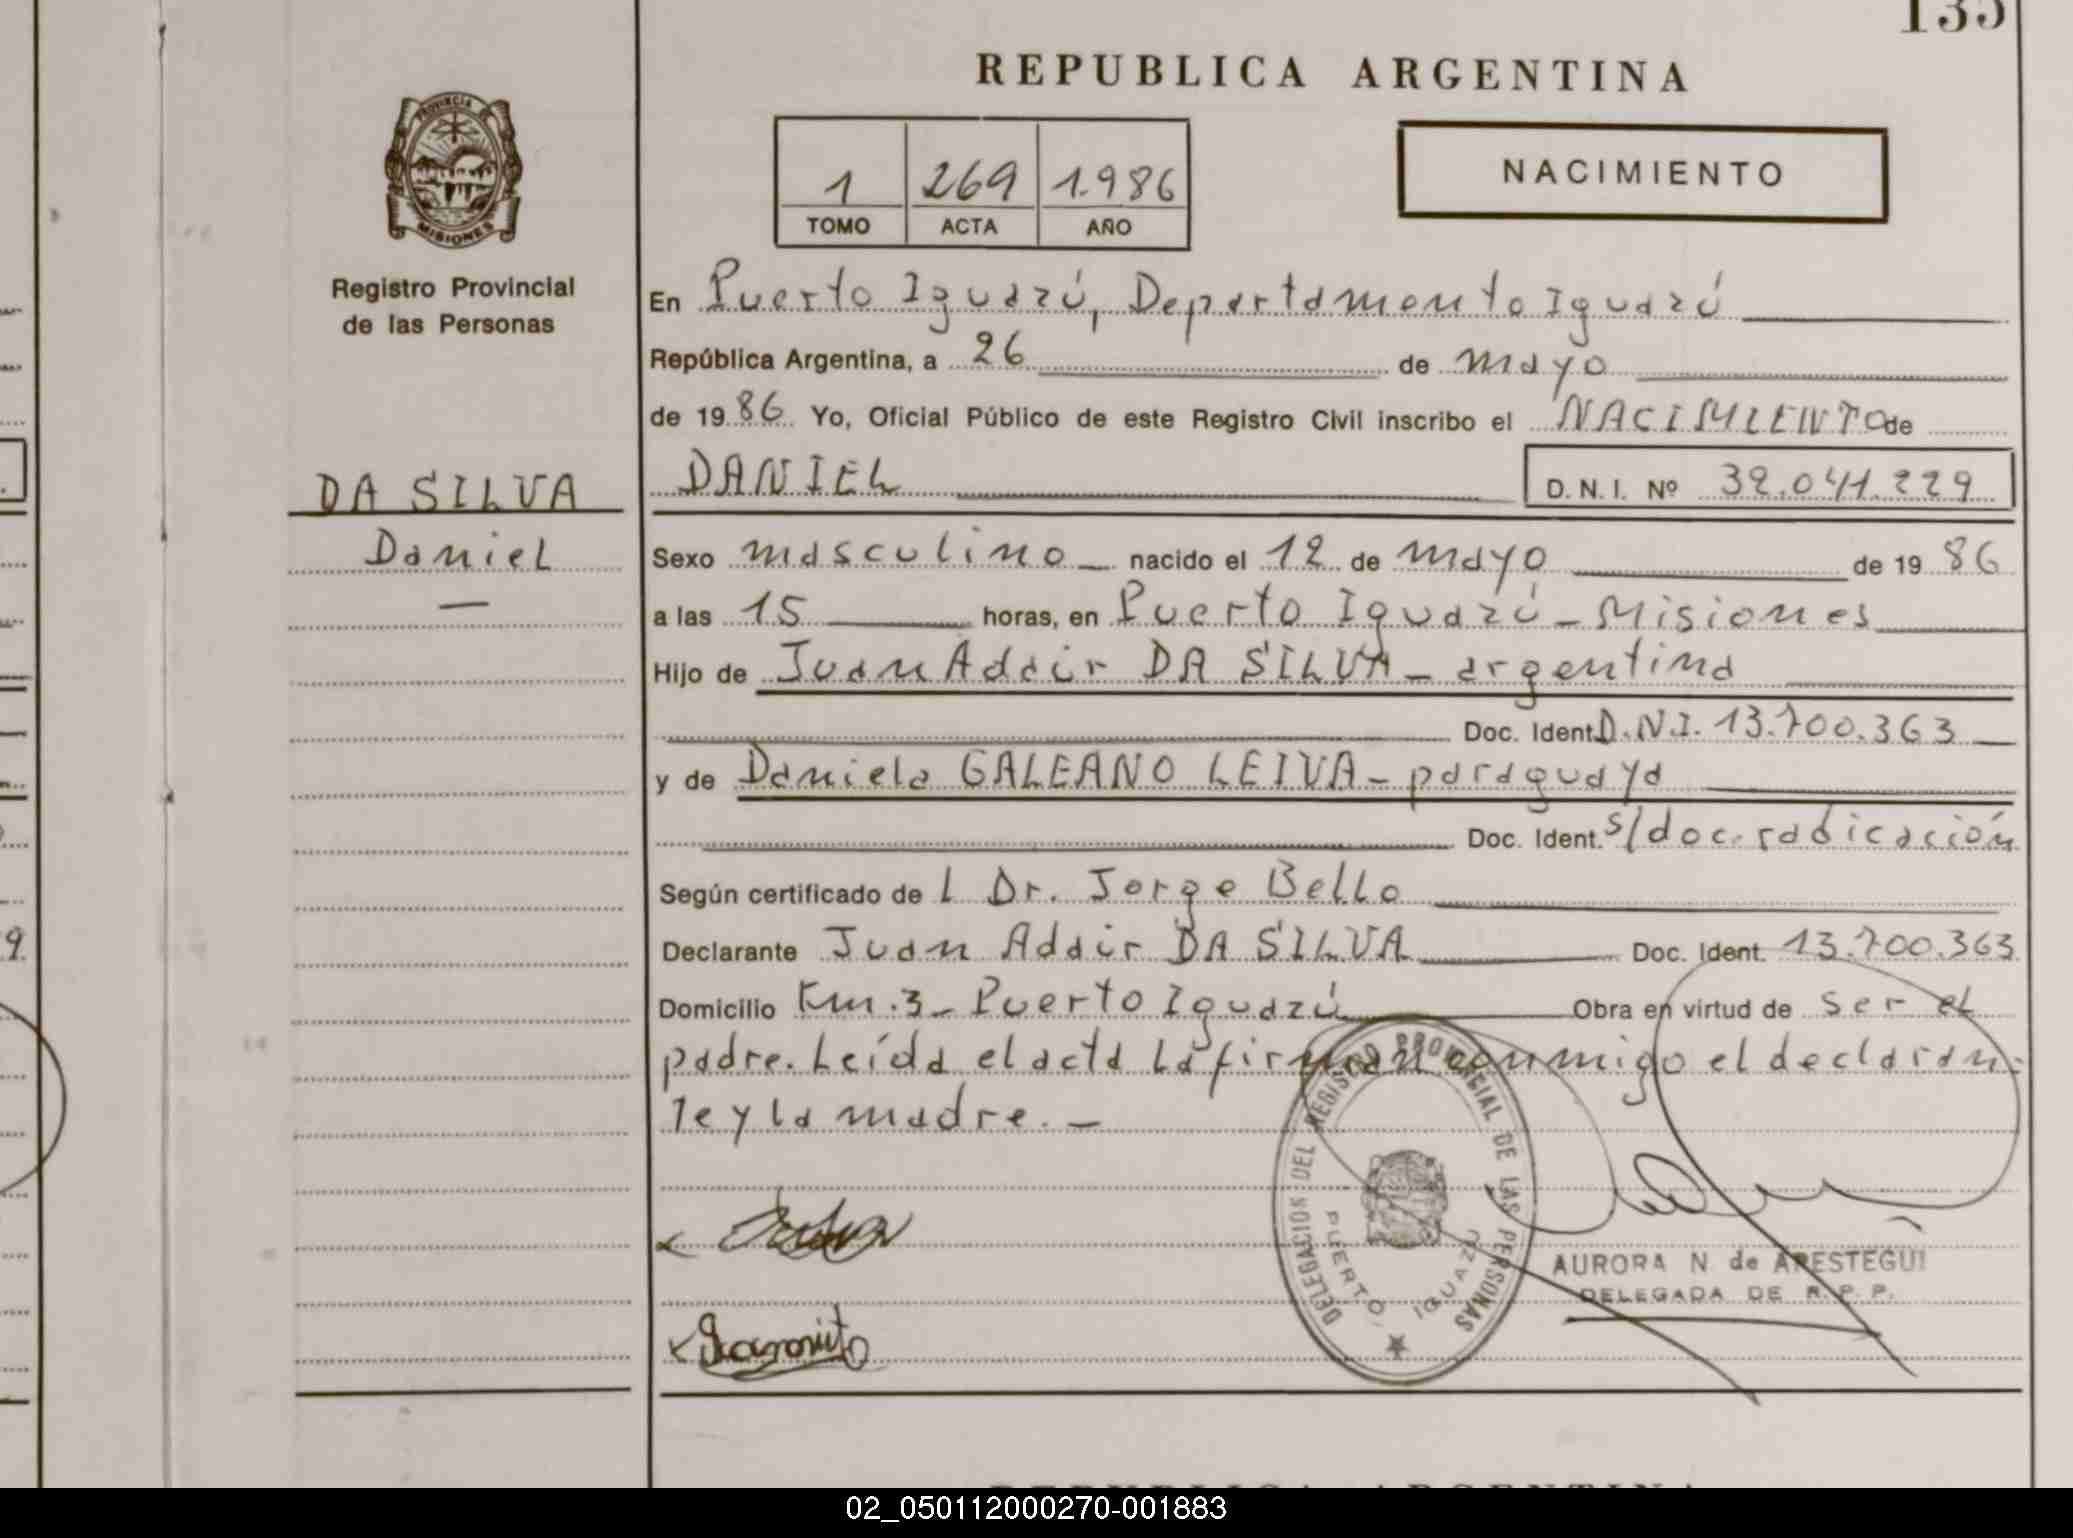 135
REPUBLICA ARGENTINA
PROVINCIA DE
MISIONES
Registro Provincial
de las Personas
1 269 1.986
TOMO ACTA AÑO
NACIMIENTO
En Puerto Iguazú, Departamento Iguazú
República Argentina, a 26 de mayo
de 1986 Yo, Oficial Público de este Registro Civil inscribo el NACIMIENTO de
DA SILVA
DANIEL
D.N.I. Nº 32.041.229
Daniel
Sexo masculino nacido el 12 de mayo de 1986
a las 15 horas, en Puerto Iguazú - Misiones
Hijo de Juan Addir DA SILVA - argentina
Doc. Ident. D.N.I. 13.700.363
y de Daniela GALEANO LEIVA - paraguaya
Doc. Ident. s/doc. radicación
Según certificado de l Dr. Jorge Bello
Declarante Juan Addir DA SILVA Doc. Ident. 13.700.363
Domicilio Km. 3 - Puerto Iguazú Obra en virtud de ser el
padre. Leída el acta la firman conmigo el declaran-
te y la madre. -
DELEGACION DEL REGISTRO PROVINCIAL DE LAS PERSONAS
PUERTO IGUAZU
AURORA N de ARESTEGUI
DELEGADA DE R. P. P.
02_050112000270-001883